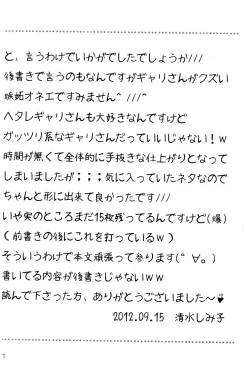 と、言うわけでいかがでしたでしょうか///
後書きで言うのもなんですがギャリさんがクズい
嫉妬オネエですみません^ ///^
ヘタレギャリさんも大好きなんですけど
ガッツリ系なギャリさんだっていいじゃない!w
時間が無くて全体的に手抜きな仕上がりとなって
しまいましたが;;;気に入っていたネタなので
ちゃんと形に出来て良かったです///
いや実のところまだ15枚残ってるんですけど(爆)
(前書きの後にこれを打っているw)
そういうわけで本文頑張って参ります(°∀。)
書いてる内容が後書きじゃないww
読んで下さった方、ありがとうございました~♥
2012.09.15 清水しみ子
1